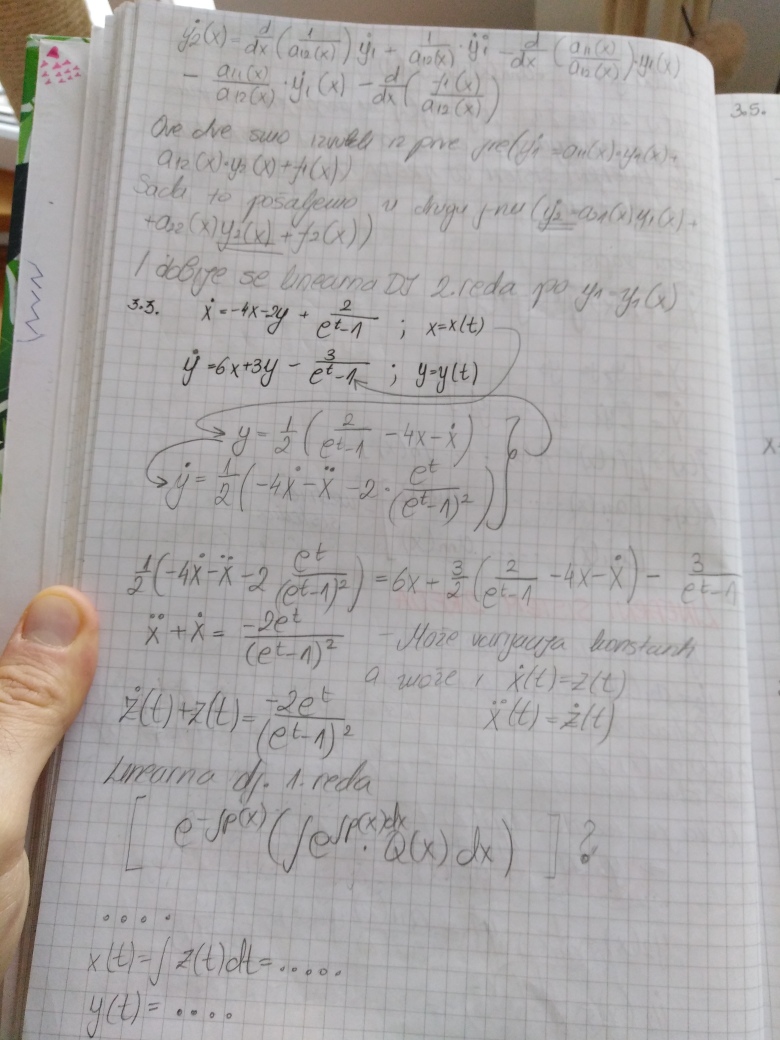 ẏ2(x) = d/dx (1/a12(x)) ẏ1 + 1/a12(x) · ÿ1 - d/dx (a11(x)/a12(x)) · y1(x)
- a11(x)/a12(x) · ẏ1(x) - d/dx (f1(x)/a12(x))
Ove dve smo izvukli iz prve jne (ẏ1 = a11(x)·y1(x)+
a12(x)·y2(x)+f1(x))
Sada to pošaljemo u drugu j-nu (ẏ2 = a21(x)y1(x)+
+a22(x)y2(x)+f2(x))
I dobije se linearna DJ 2. reda po y1=y1(x)
3.3. ẋ=-4x-2y + 2/(e^t-1) ; x=x(t)
ẏ=6x+3y - 3/(e^t-1) ; y=y(t)
y = 1/2 (2/(e^t-1) - 4x - ẋ)
ẏ = 1/2 (-4ẋ - ẍ - 2 · e^t/(e^t-1)^2)
1/2 (-4ẋ - ẍ - 2 e^t/(e^t-1)^2) = 6x + 3/2 (2/(e^t-1) - 4x - ẋ) - 3/(e^t-1)
ẍ + ẋ = -2e^t/(e^t-1)^2 - Može varijacija konstanti
a može i ẋ(t)=z(t)
ż(t)+z(t) = -2e^t/(e^t-1)^2 ẍ(t)=ż(t)
Linearna dj. 1. reda
[ e^-∫p(x) (∫e^∫p(x)dx · Q(x) dx) ] ?
. . . .
x(t)=∫z(t)dt=.....
y(t)= ....
3.5.
x